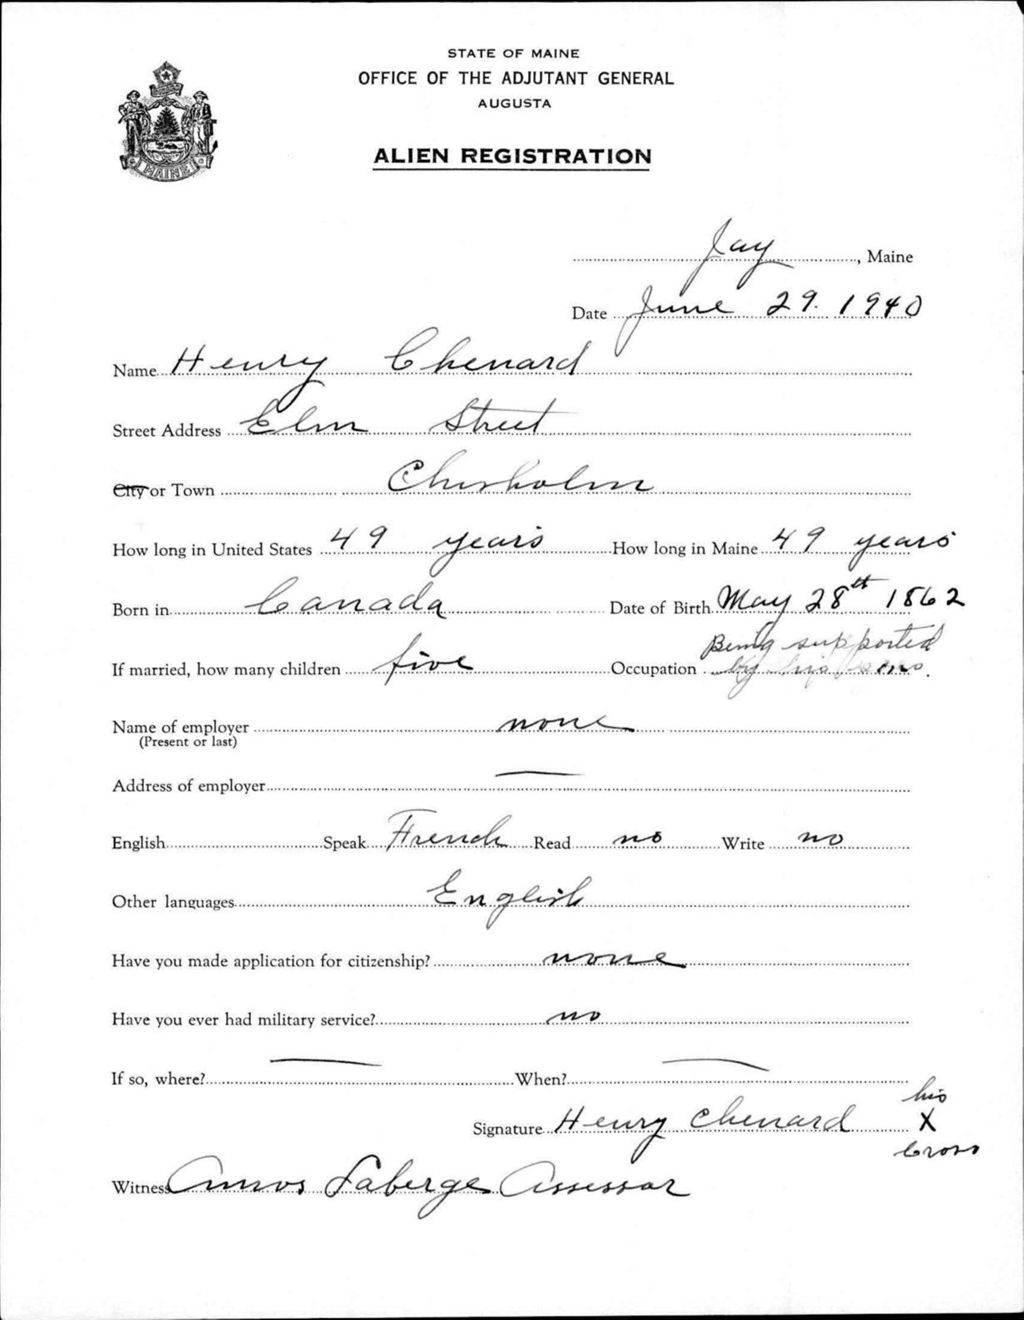 STATE OF MAINE
OFFICE OF THE ADJUTANT GENERAL
AUGUSTA
ALIEN REGISTRATION
MAINE
Jay, Maine
Date June 29. 1940
Name Henry Chenard
Street Address Elm Street
City or Town Chisholm
How long in United States 49 years How long in Maine 49 years
Born in Canada Date of Birth May 28th 1862
If married, how many children five Occupation Being supported by his sons.
Name of employer none
(Present or last)
Address of employer —
English Speak French Read no Write no
Other languages English
Have you made application for citizenship? none
Have you ever had military service? no
If so, where? — When? —
his
Signature Henry Chenard X
Cross
Witness Amos Laberge Assessor